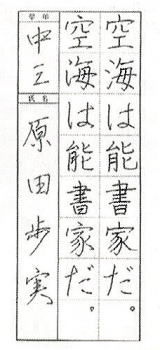 空海は能書家だ。
空海は能書家だ。
学年
中三
氏名
原田歩実